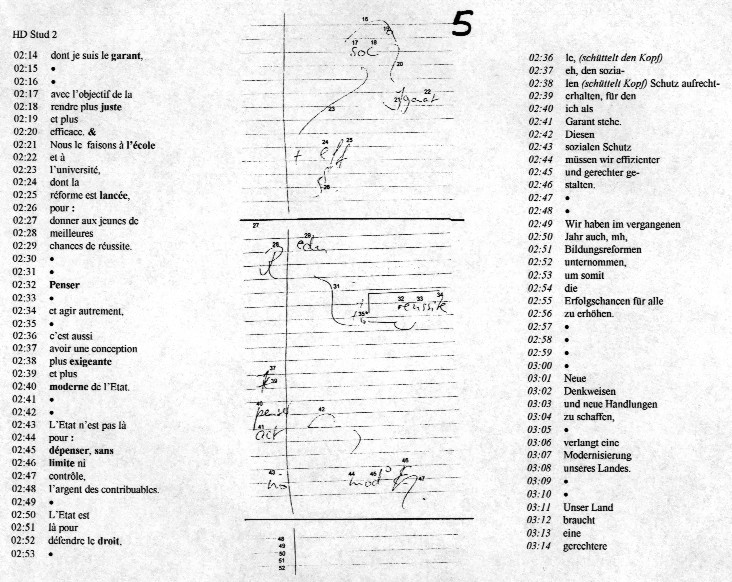 HD Stud 2
5
02:14 dont je suis le garant,
02:15 •
02:16 •
02:17 avec l'objectif de la
02:18 rendre plus juste
02:19 et plus
02:20 efficace. &
02:21 Nous le faisons à l'école
02:22 et à
02:23 l'université,
02:24 dont la
02:25 réforme est lancée,
02:26 pour :
02:27 donner aux jeunes de
02:28 meilleures
02:29 chances de réussite.
02:30 •
02:31 •
02:32 Penser
02:33 •
02:34 et agir autrement,
02:35 •
02:36 c'est aussi
02:37 avoir une conception
02:38 plus exigeante
02:39 et plus
02:40 moderne de l'Etat.
02:41 •
02:42 •
02:43 L'Etat n'est pas là
02:44 pour :
02:45 dépenser, sans
02:46 limite ni
02:47 contrôle,
02:48 l'argent des contribuables.
02:49 •
02:50 L'Etat est
02:51 là pour
02:52 défendre le droit,
02:53 •
16
19
17 18
soc
20
21 22
garat
23
24 25
+ eff
26
27
28 29
edu
31
32 33 34
reussite
35
37
39
40
pense
41 42
act
43 44 45 46 47
no mod
48
49
50
51
52
02:36 le, (schüttelt den Kopf)
02:37 eh, den sozia-
02:38 len (schüttelt Kopf) Schutz aufrecht-
02:39 erhalten, für den
02:40 ich als
02:41 Garant stehe.
02:42 Diesen
02:43 sozialen Schutz
02:44 müssen wir effizienter
02:45 und gerechter ge-
02:46 stalten.
02:47 •
02:48 •
02:49 Wir haben im vergangenen
02:50 Jahr auch, mh,
02:51 Bildungsreformen
02:52 unternommen,
02:53 um somit
02:54 die
02:55 Erfolgschancen für alle
02:56 zu erhöhen.
02:57 •
02:58 •
02:59 •
03:00 •
03:01 Neue
03:02 Denkweisen
03:03 und neue Handlungen
03:04 zu schaffen,
03:05 •
03:06 verlangt eine
03:07 Modernisierung
03:08 unseres Landes.
03:09 •
03:10 •
03:11 Unser Land
03:12 braucht
03:13 eine
03:14 gerechtere